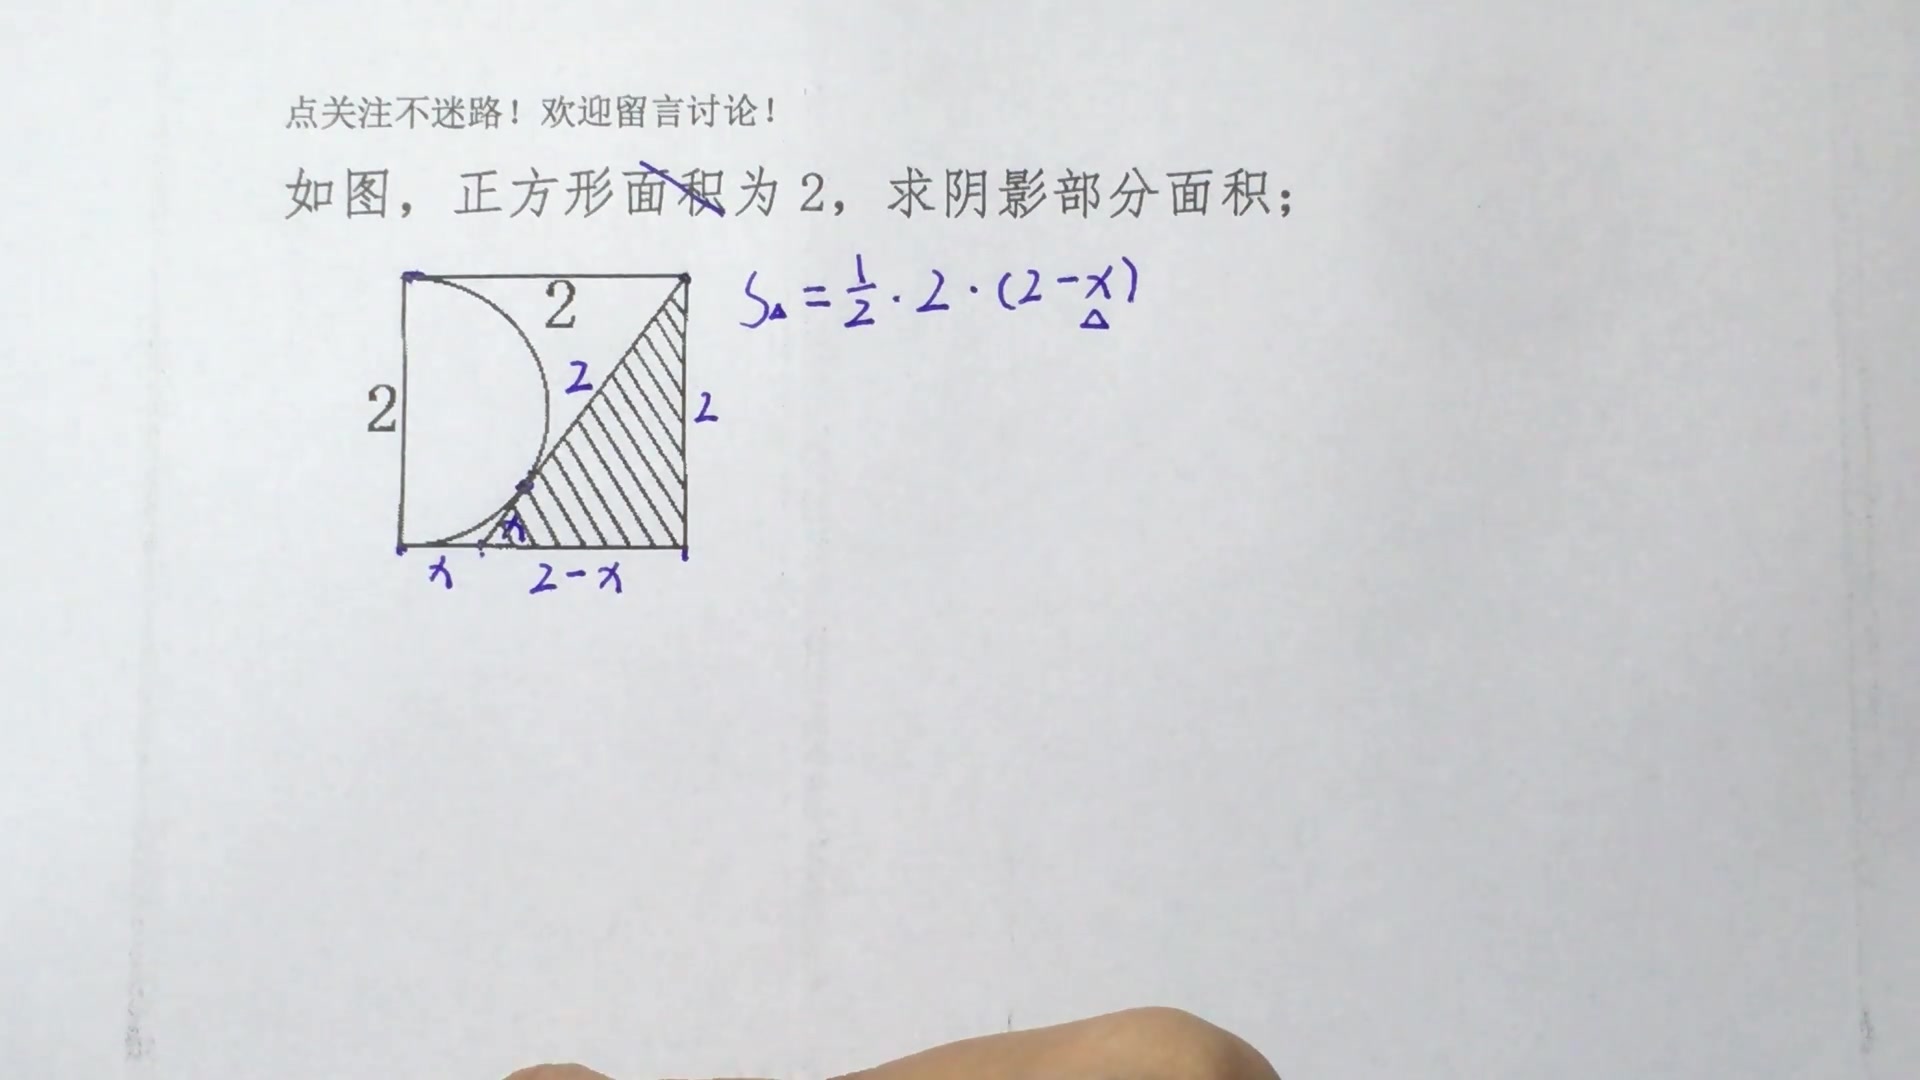 点关注不迷路！欢迎留言讨论！
如图，正方形面积为2，求阴影部分面积；
S△ = 1/2 · 2 · (2 - x)
△
2
2
2
2
x
x
2 - x